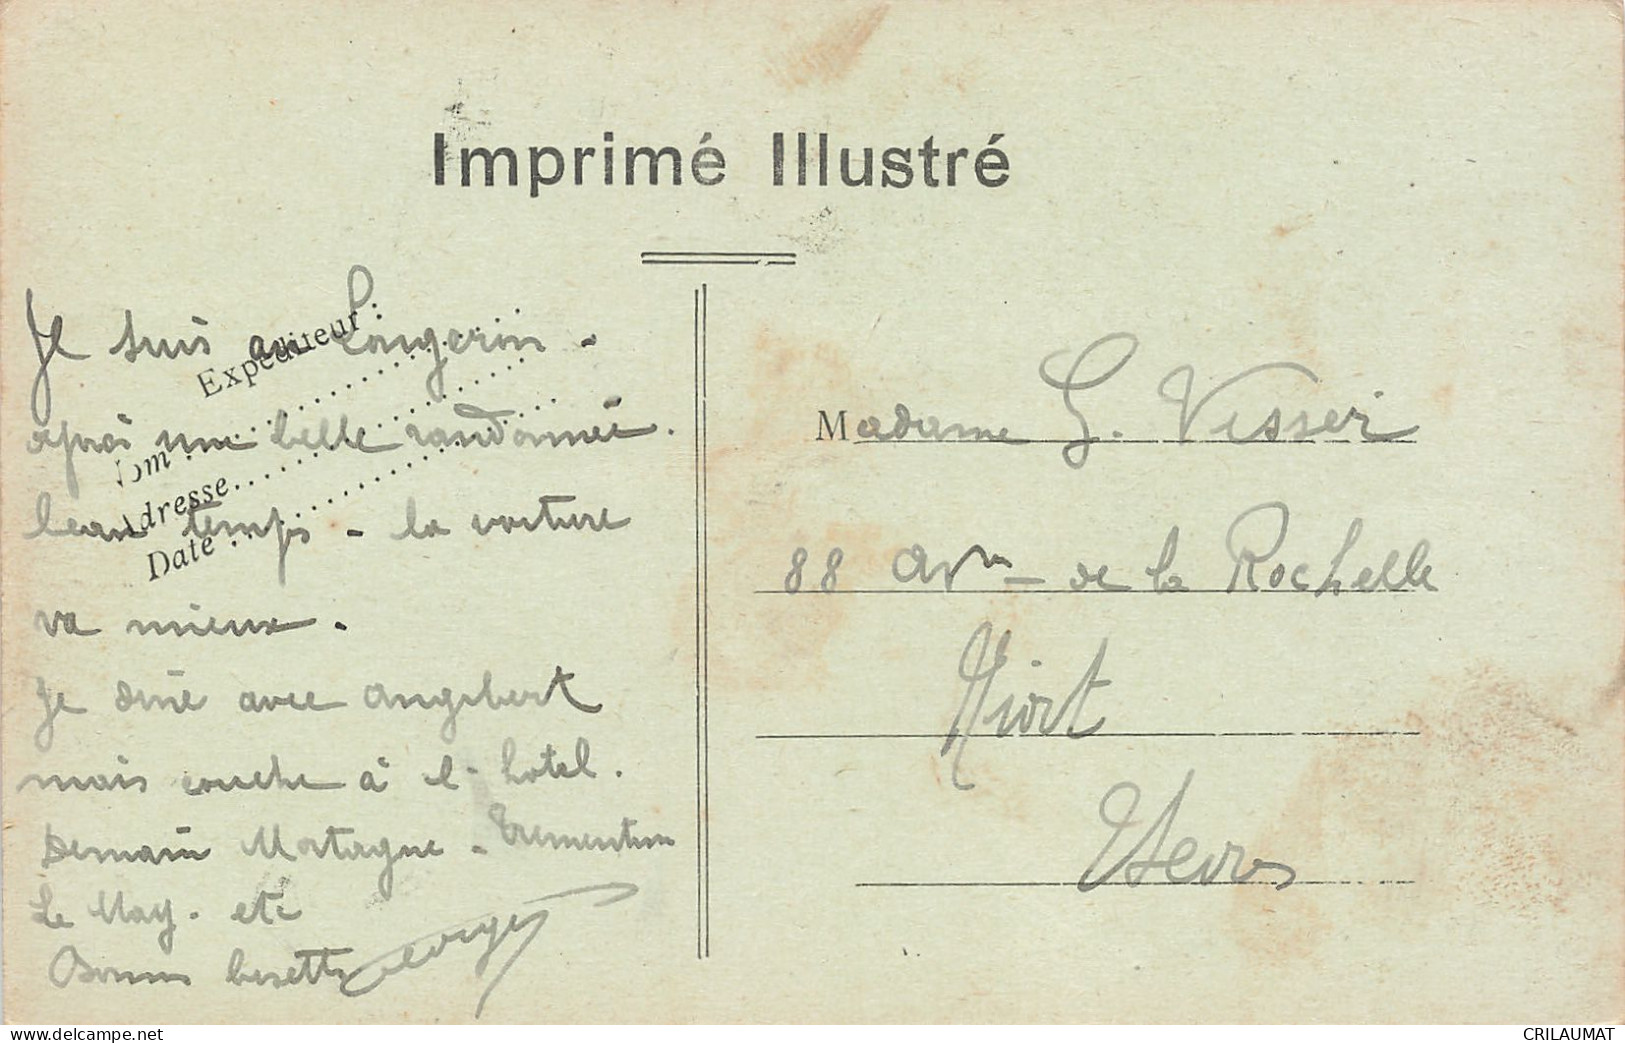 Imprimé Illustré
Expéditeur :
Nom
Adresse
Date
Je suis au Longeron -
après une belle randonnée.
beau temps - la voiture
va mieux.
Je dîne avec Angibert
mais couche à l'hotel.
Demain Mortagne - Trementines
Le May. etc
Bonnes bisettes Georges
Madame G. Visseri
88 Avue de la Rochelle
Niort
2 Sevres
www.delcampe.net
CRILAUMAT